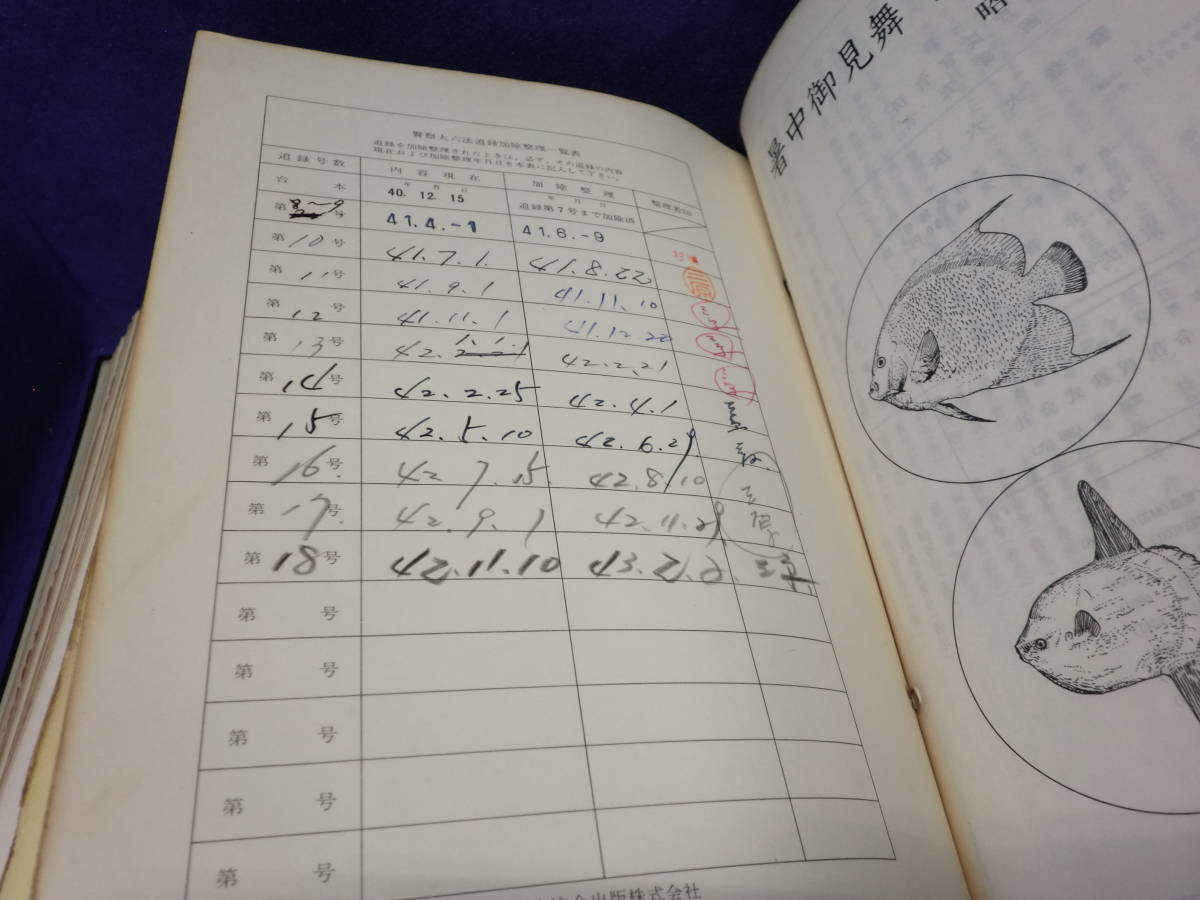 警察大六法追録加除整理一覧表
追録を加除整理されたときは、必ず、その追録の内容
現在および加除整理年月日を本表に記入して下さい。
追録号数 内容現在 加除整理 整理者印
台本 年 月 日 40. 12. 15 年 月 日 追録第7号まで加除済
第8~9号 41.4.-1 41.6.-9
第10号 41.7.1. 41.8.22
第11号 41.9.1 41.11.10
第12号 41.11.1 41.12.22
第13号 42. 1.1. 42.2.21
第14号 42.2.25 42.4.1
第15号 42.5.10 42.6.29
第16号. 42 7.15. 42.8.10
第17. 42.9.1 42.11.29 三原
第18号 42.11.10 43.2.2.
第 号
第 号
第 号
第 号
第 号
出版株式会社
暑中御見舞
昭